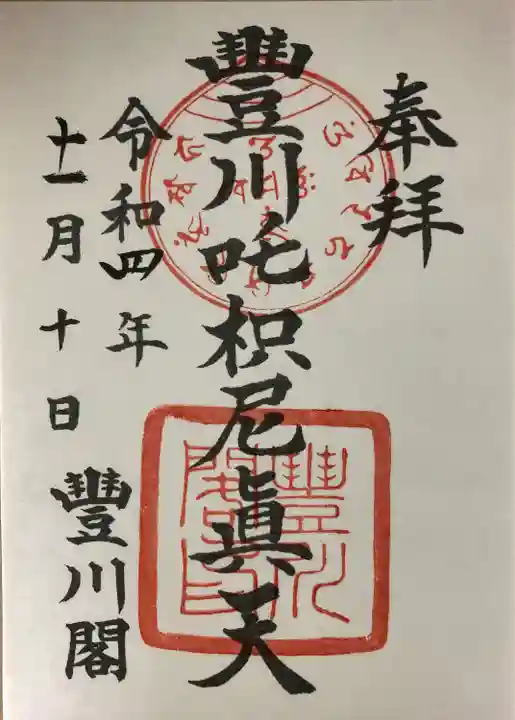 奉拝
豐川吒枳尼眞天
令和四年
十一月十日
豐川閣